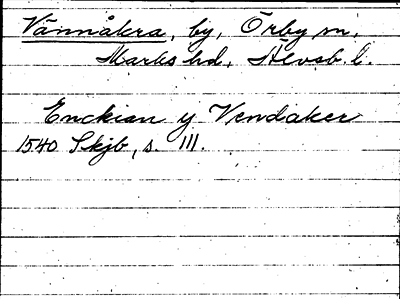 Vännåkra, by, Örby sn,
Marks hd, Älvsb. l.
Enckian y Vendaker
1540 Skjb, s. 111.